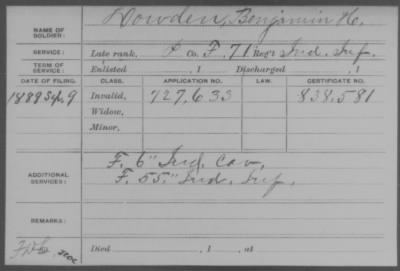 NAME OF SOLDIER: Dowden, Benjimin H.
SERVICE: Late rank, P Co. F, 71" Reg't Ind. Inf.
TERM OF SERVICE: Enlisted , 1 Discharged , 1
DATE OF FILING. CLASS. APPLICATION NO. LAW. CERTIFICATE NO.
1889 Sep. 9 Invalid, 727,633 838,581
Widow,
Minor,
ADDITIONAL SERVICES: F. 6" Ind. Cav.
F. 55." Ind. Inf.
REMARKS:
Died , 1 , at